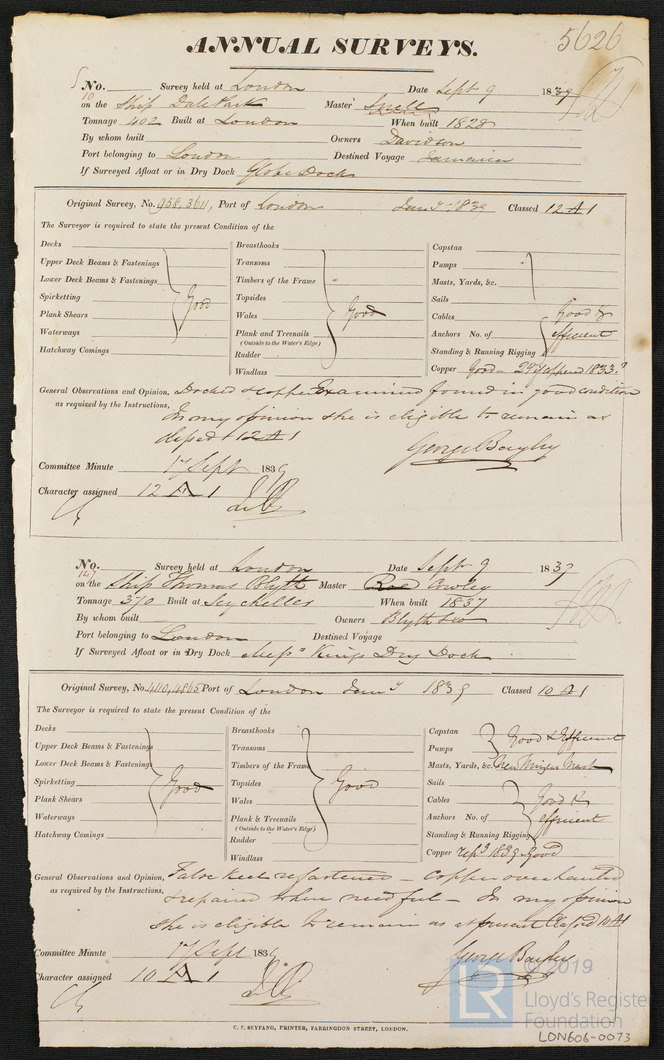 5626
ANNUAL SURVEYS.
No. Survey held at London Date Sept 9 1839
10
on the Ship Dale Park Master Snell
Tonnage 402 Built at London When built 1828
By whom built Owners Davidson
Port belonging to London Destined Voyage Jamaica
If Surveyed Afloat or in Dry Dock Globe Dock
Original Survey, No. 958, 3611, Port of London Jany 1839 Classed 12 A 1
The Surveyor is required to state the present Condition of the
Decks Breasthooks Capstan
Upper Deck Beams & Fastenings Transoms Pumps
Lower Deck Beams & Fastenings Timbers of the Frame Masts, Yards, &c.
Spirketting Good Topsides Sails
Plank Shears Wales Good Cables Good &
Waterways Plank and Treenails Anchors No. of efficient
(Outside to the Water's Edge)
Hatchway Comings Rudder Standing & Running Rigging
Windlass Copper Good 1833
General Observations and Opinion, Docked & copper Examined found in good condition
as required by the Instructions, In my opinion she is eligible to remain as
classed 12 A 1
George Bayley
Committee Minute 17 Sept 1839
Character assigned 12 A 1
No. Survey held at London Date Sept 9 1839
147
on the Ship Thomas Blyth Master Rae Cowley
Tonnage 370 Built at Seychelles When built 1837
By whom built Owners Blyth &co
Port belonging to London Destined Voyage
If Surveyed Afloat or in Dry Dock Mess" Kings Dry Dock
Original Survey, No. 4110, 4865 Port of London Jany 1839 Classed 10 A 1
The Surveyor is required to state the present Condition of the
Decks Breasthooks Capstan Good & Efficient
Upper Deck Beams & Fastenings Transoms Pumps
Lower Deck Beams & Fastenings Timbers of the Frame Masts, Yards, &c. New Mizen Mast
Spirketting Good Topsides Good Sails
Plank Shears Wales Cables Good &
Waterways Plank & Treenails Anchors No. of efficient
(Outside to the Water's Edge)
Hatchway Comings Rudder Standing & Running Rigging
Windlass Copper repd 1839 Good
General Observations and Opinion, False keel refastened – copper overhauled
as required by the Instructions, & repaired where needful – In my opinion
she is eligible to remain as at present Classed 10 A 1
Committee Minute 17 Sept 1839 George Bayley
Character assigned 10 A 1
C. F. SEYFANG, PRINTER, FARRINGDON STREET, LONDON.
LR © 2019
Lloyd's Register
Foundation
LON606-0073